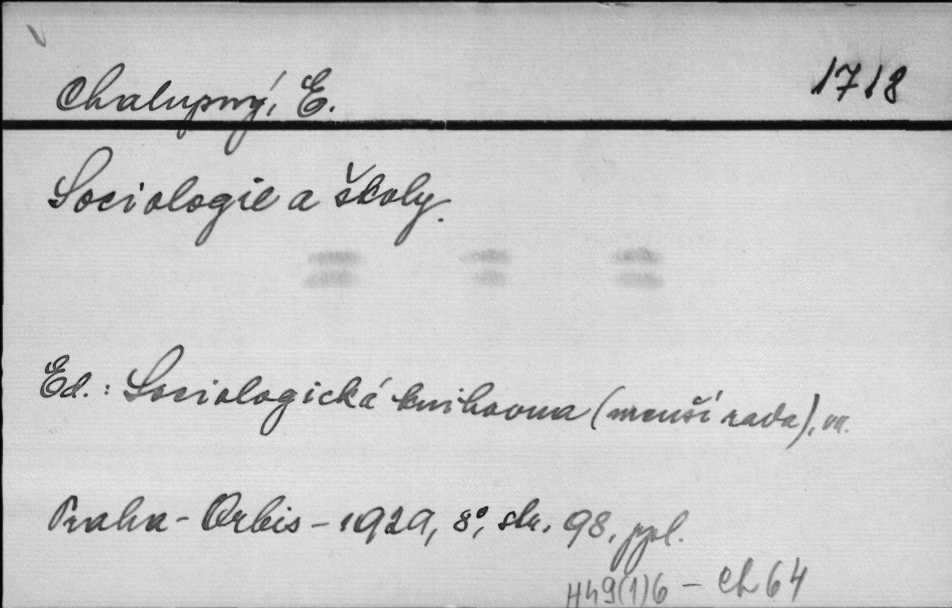 Chalupný, E.
1718
Sociologie a školy.
Ed.: Sociologická knihovna (menší řada), VII.
Praha - Orbis - 1929, 8°, str. 98, ppl.
H49(1)6 - Ch 64